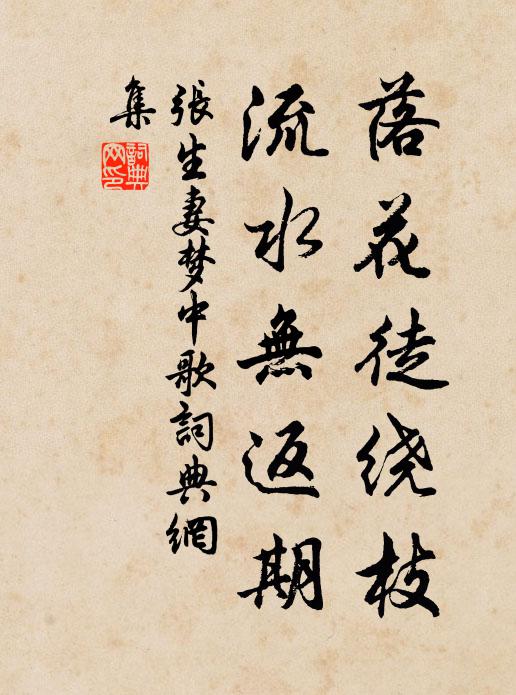 落花徒绕枝
流水無返期
張生妻梦中歌詞典網
集
詞典
网印